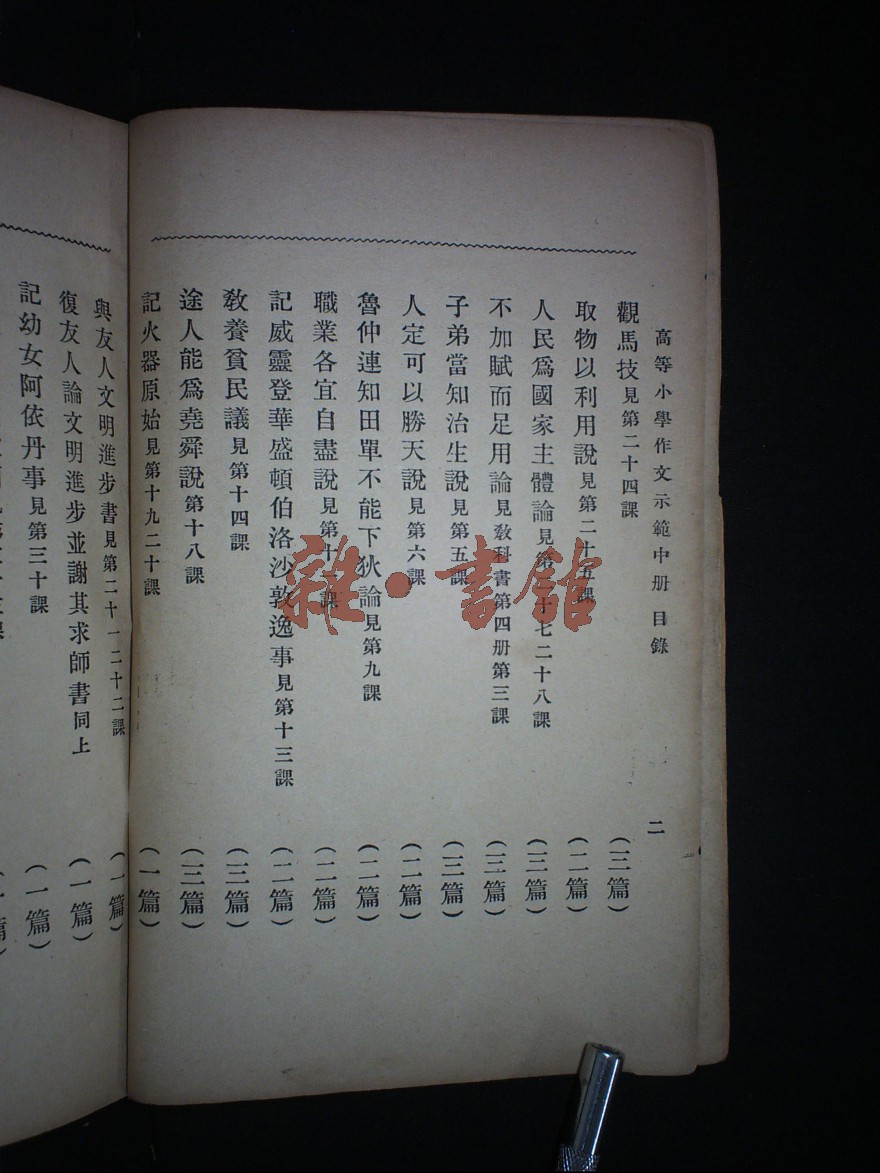 高等小學作文示範中册 目錄 二
觀馬技見第二十四課 (三篇)
取物以利用說見第二十五課 (二篇)
人民爲國家主體論見第二十七二十八課 (三篇)
不加賦而足用論見教科書第四册第三課 (三篇)
子弟當知治生說見第五課 (三篇)
人定可以勝天說見第六課 (二篇)
魯仲連知田單不能下狄論見第九課 (二篇)
職業各宜自盡說見第十一課 (二篇)
記威靈登華盛頓伯洛沙敦逸事見第十三課 (二篇)
教養貧民議見第十四課 (三篇)
途人能爲堯舜說第十八課 (三篇)
記火器原始見第十九二十課 (一篇)
與友人文明進步書見第二十一二十二課 (一篇)
復友人論文明進步並謝其求師書同上 (一篇)
記幼女阿依丹事見第三十課 (一篇)
雜·書館